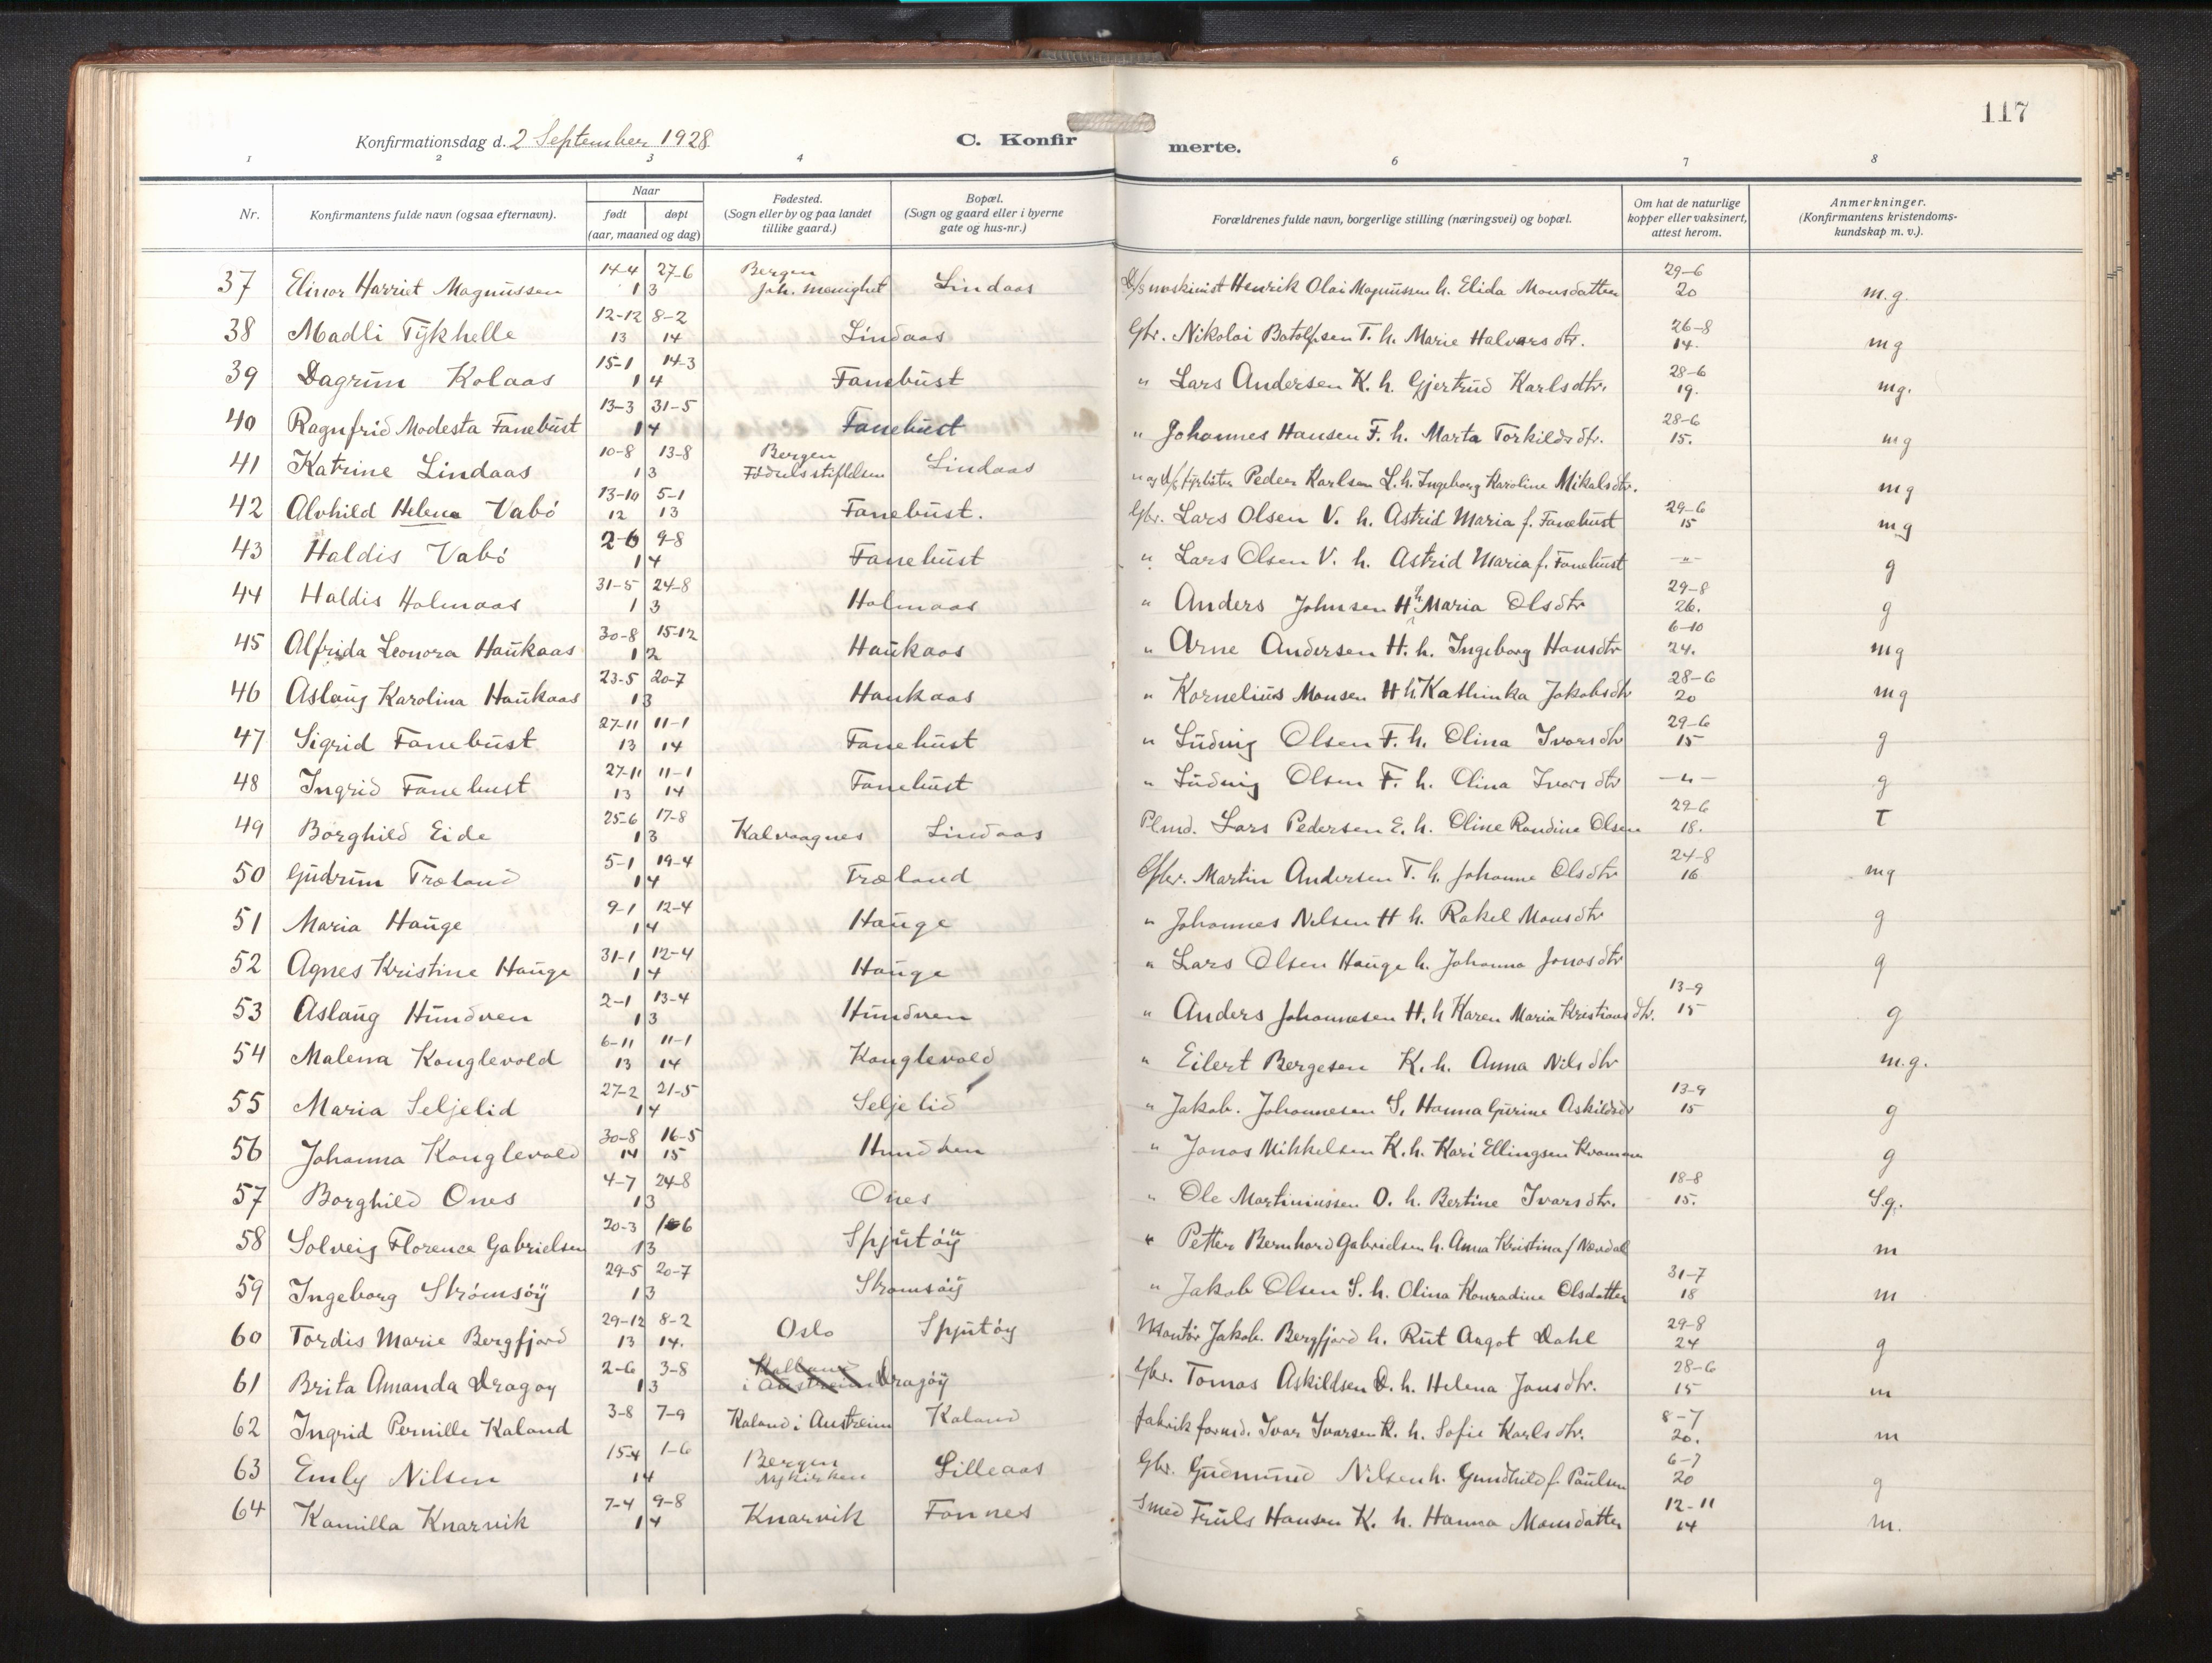 117
Konfirmationsdag d. 2 September 1928
C. Konfirmerte.
1 2 3 4 6 7 8
Nr.
Konfirmantens fulde navn (ogsaa efternavn).
Naar
født døpt
(aar, maaned og dag)
Fødested.
(Sogn eller by og paa landet
tillike gaard.)
Bopæl.
(Sogn og gaard eller i byerne
gate og hus-nr.)
Forældrenes fulde navn, borgerlige stilling (næringsvei) og bopæl.
Om hat de naturlige
kopper eller vaksinert,
attest herom.
Anmerkninger.
(Konfirmantens kristendoms-
kundskap m. v.).
37 Elinor Harriet Magnussen 14-4 27-6 13 Bergen Joh. menighet Lindaas D/s maskinist Henrik Olai Magnussen h. Elida Monsdatter 29-6 20 m.g.
38 Madli Tykhelle 12-12 13 8-2 14 Lindaas Gbr. Nikolai Botolfsen T. h. Marie Halvorsdtr. 26-8 14. mg
39 Dagrun Kolaas 15-1 14-3 14 Fanebust " Lars Andersen K. h. Gjertrud Karlsdtr. 28-6 19. mg.
40 Ragnfrid Modesta Fanebust 13-3 31-5 14 Fanebust " Johannes Hansen F. h. Marta Torkildsdtr. 28-6 15. mg
41 Katrine Lindaas 10-8 13-8 13 Bergen Fødselsstiftelsen Lindaas " og d/s fyrbøter Peder Karlsen L. h. Ingeborg Karoline Mikalsdtr. mg
42 Alvhild Helena Vabø 13-10 12 5-1 13 Fanebust. Gbr. Lars Olsen V. h. Astrid Maria f. Fanebust 29-6 15 mg
43 Haldis Vabø 2-6 9-8 14 Fanebust " Lars Olsen V. h. Astrid Maria f. Fanebust -"- g
44 Haldis Holmaas 31-5 24-8 13 Holmaas " Anders Johnsen H h. Maria Olsdtr 29-8 26. g
45 Alfrida Leonora Haukaas 30-8 15-12 12 Haukaas " Arne Andersen H. h. Ingeborg Hansdtr 6-10 24. mg
46 Aslaug Karolina Haukaas 23-5 20-7 13 Haukaas " Kornelius Monsen H h. Kathinka Jakobsdtr 28-6 20 mg
47 Sigrid Fanebust 27-11 13 11-1 14 Fanebust " Ludvig Olsen F. h. Olina Ivarsdtr 29-6 15 g
48 Ingrid Fanebust 27-11 13 11-1 14 Fanebust " Ludvig Olsen F. h. Olina Ivarsdtr -"- g
49 Borghild Eide 25-6 17-8 13 Kalvaagnes Lindaas Plmd. Lars Pedersen E. h. Oline Randine Olsen 29-6 18. T
50 Gudrun Træland 5-1 19-4 14 Træland Gbr. Martin Andersen T. h. Johanne Olsdtr 24-8 16 mg
51 Maria Hauge 9-1 12-4 14 Hauge " Johannes Nilsen H h. Rakel Monsdtr g
52 Agnes Kristine Hauge 31-1 12-4 14 Hauge " Lars Olsen Hauge h. Johanna Jonasdtr g
53 Aslaug Hundven 2-1 13-4 13 Hundven " Anders Johannesen H. h Karen Maria Kristiansdtr. 13-9 15 g
54 Malena Konglevold 6-11 13 11-1 14 Konglevold " Eilert Bergesen K. h. Anna Nilsdtr m.g.
55 Maria Seljelid 27-2 21-5 14 Seljelid " Jakob. Johannesen S, Hanna Gurine Askildsdr 13-9 15 g
56 Johanna Konglevold 30-8 14 16-5 15 Hundven " Jonas Mikkelsen K. h. Kari Ellingsen Kvamme g
57 Borghild Ones 4-7 24-8 13 Ones " Ole Martiniussen O. h. Bertine Ivarsdtr. 18-8 15. S.g.
58 Solveig Florence Gabrielsen 20-3 13 Spjutøÿ " Petter Bernhard Gabrielsen h. Anna Kristina f Nævdal m
59 Ingeborg Strømsøÿ 29-5 20-7 13 Strømsøÿ " Jakob Olsen S. h. Olina Konradine Olsdatter 31-7 18 m
60 Tordis Marie Bergfjord 29-12 13 8-2 14. Oslo Spjutøy Montør Jakob. Bergfjord h. Rut Aagot Dahl 29-8 24 g
61 Brita Amanda Dragøy 2-6 3-8 13 Kalland i Austreim Dragøÿ Gbr. Tomas Askildsen D. h. Helena Jonsdtr. 28-6 15 m
62 Ingrid Pernille Kaland 3-8 7-9 Kaland i Austreim Kaland fabrikformd. Ivar Ivarsen K. h. Sofie Karlsdtr. 8-7 20. m
63 Emly Nilsen 15-4 1-6 14 Bergen Nykirken Lilleaas Gbr. Gudmund Nilsen h. Gundhild f. Paulsen 6-7 20 g
64 Kamilla Knarvik 7-4 9-8 14 Knarvik Fonnes Smed Truls Hansen K. h. Hanna Monsdatter 12-11 14 m.